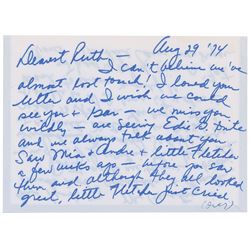 Aug 29 '74
Dearest Ruth —
I can't believe we've
almost lost touch! I loved your
letter and I wish we could
see you + — we miss you
wildly — are seeing Edie G.
and we always talk about you.
Saw Mia + Andre + little Fletcher
a few wks ago — before you saw
them and although they all looked
great, little Fletcher just cried